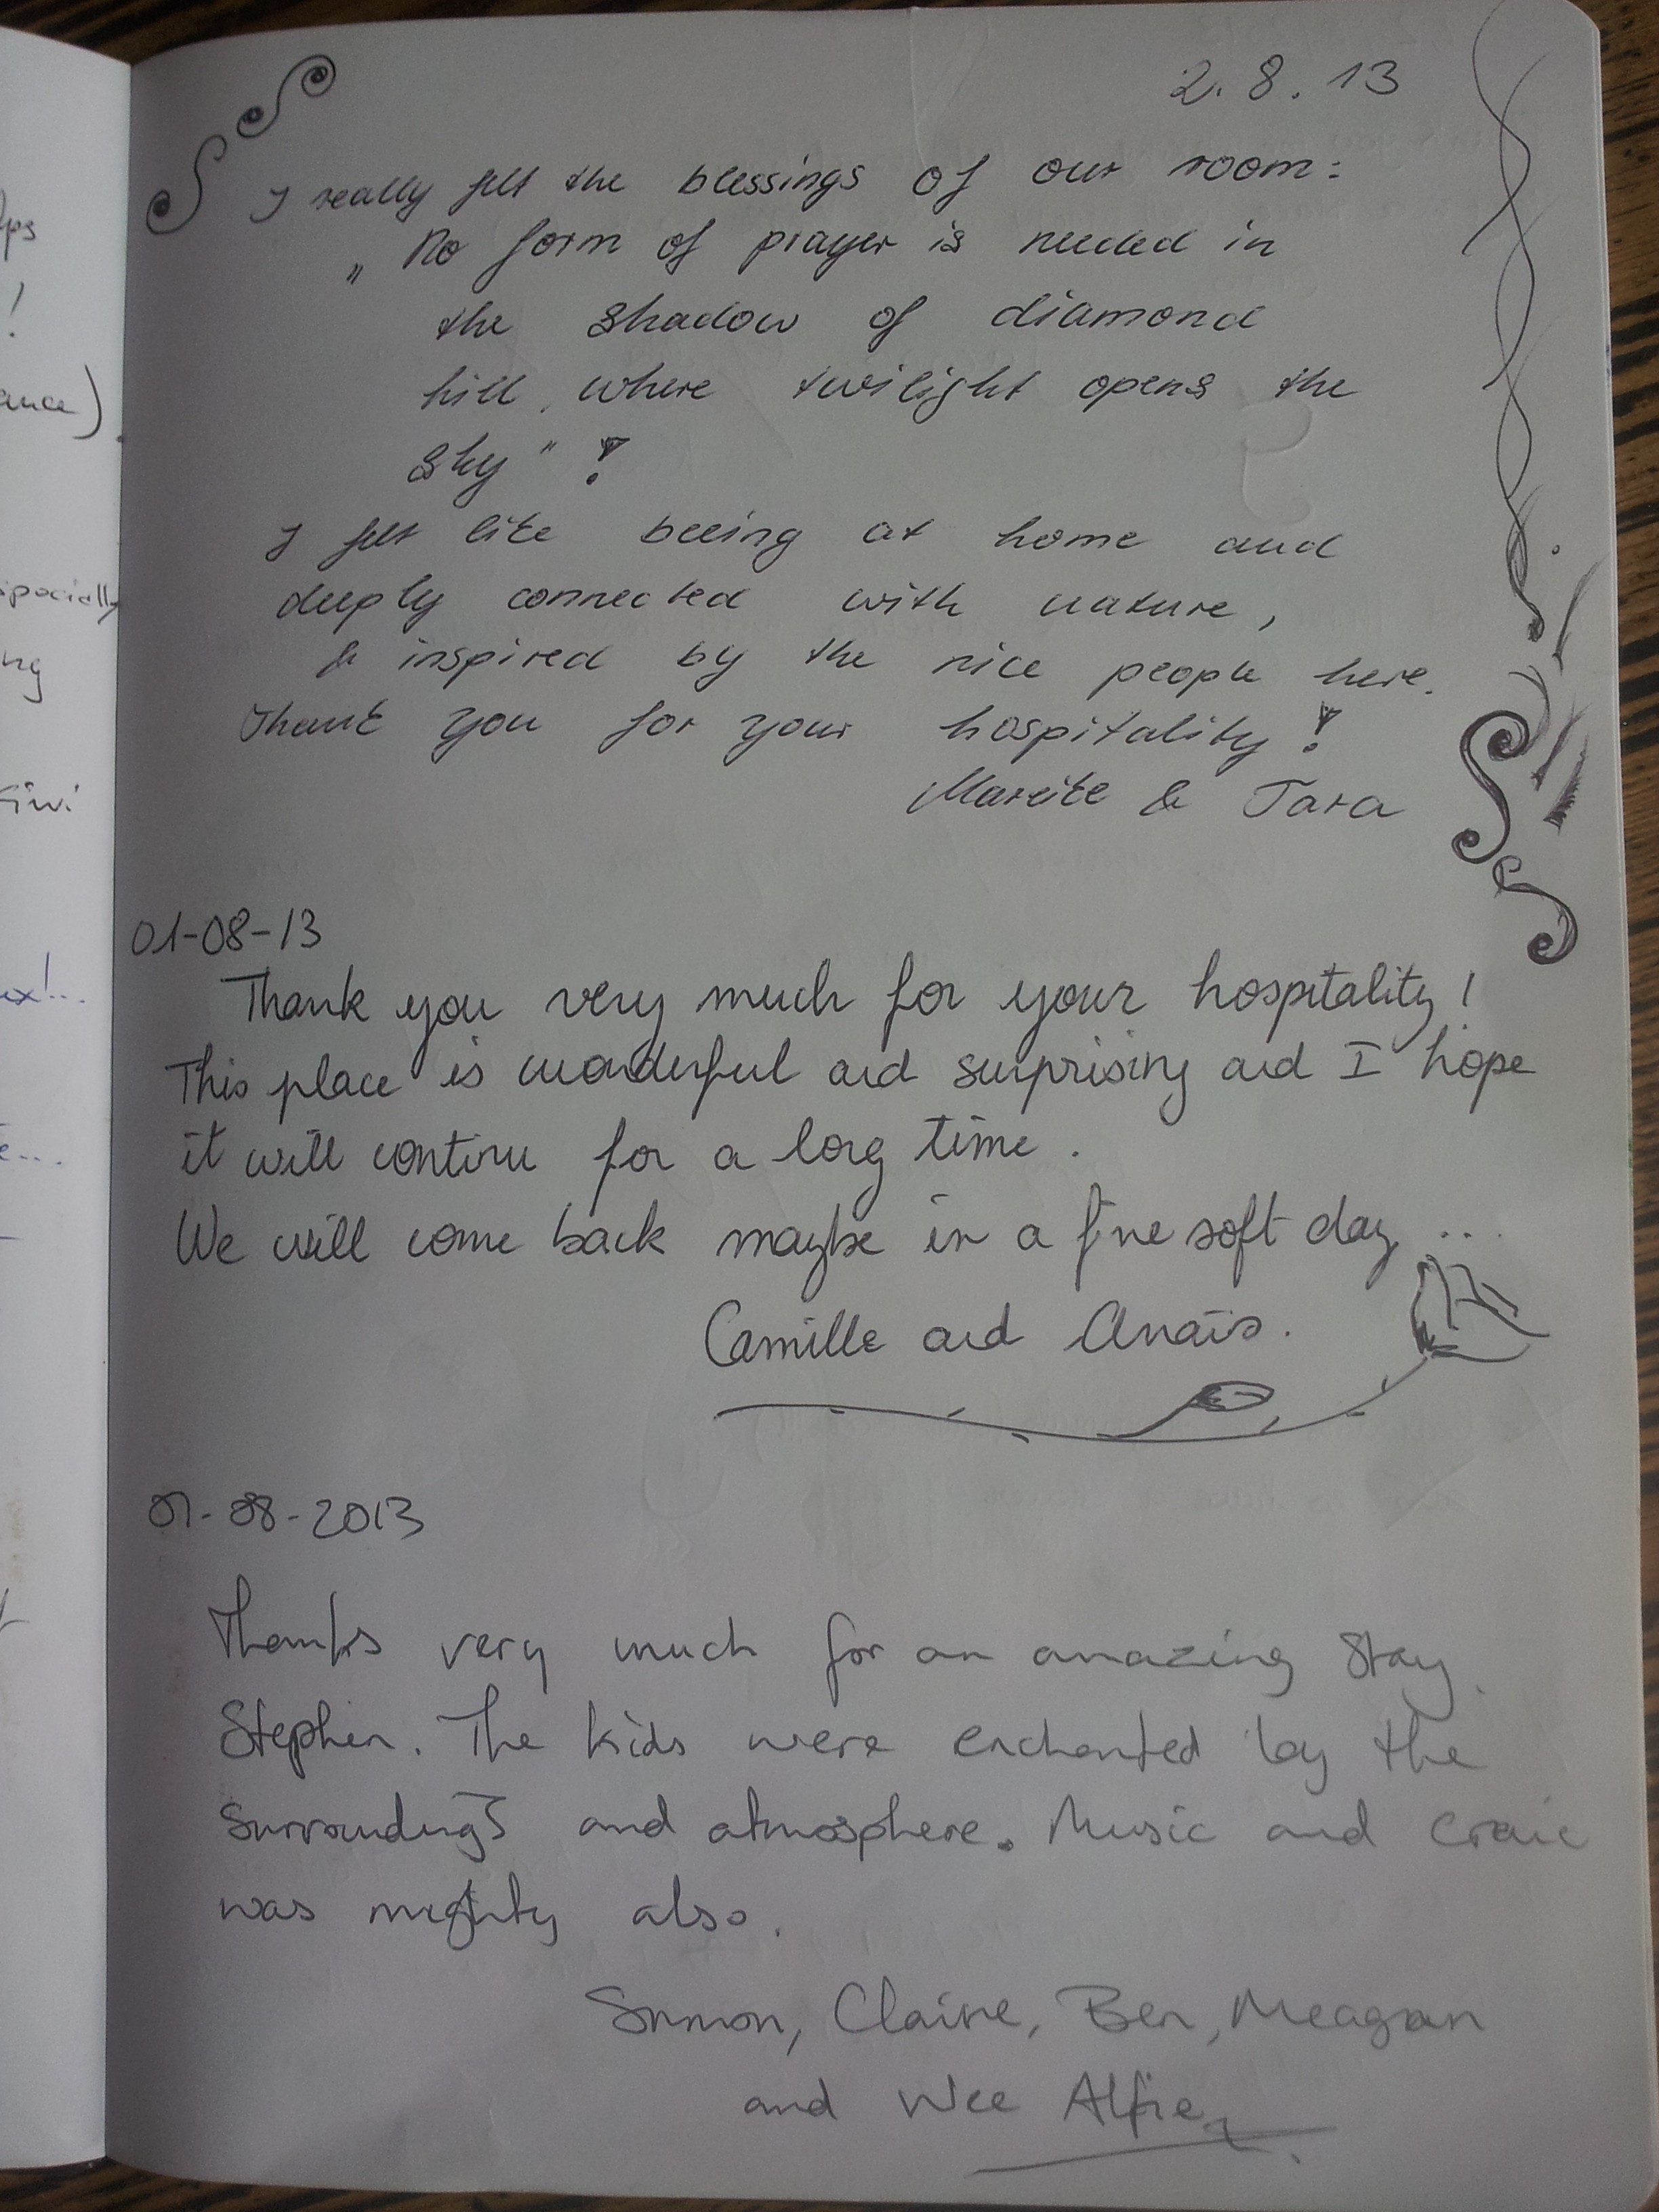 2. 8. 13
I really felt the blessings of our room:
„ No form of prayer is needed in
the shadow of diamond
hill, where twilight opens the
sky " !
I felt like beeing at home and
deeply connected with nature,
& inspired by the nice people here.
Thank you for your hospitality !
& Tara
01-08-13
Thank you very much for your hospitality !
This place is wonderful and surprising and I hope
it will continu for a long time.
We will come back maybe in a fine soft day ...
Camille and Anaïs.
01-08-2013
Thanks very much for an amazing stay
Stephen. The kids were enchanted by the
surroundings and atmosphere. Music and craic
was mighty also.
Simon, Claire, Ben, Meagan
and Wee Alfie
ps
!
ance)
specially
ng
Kiwi